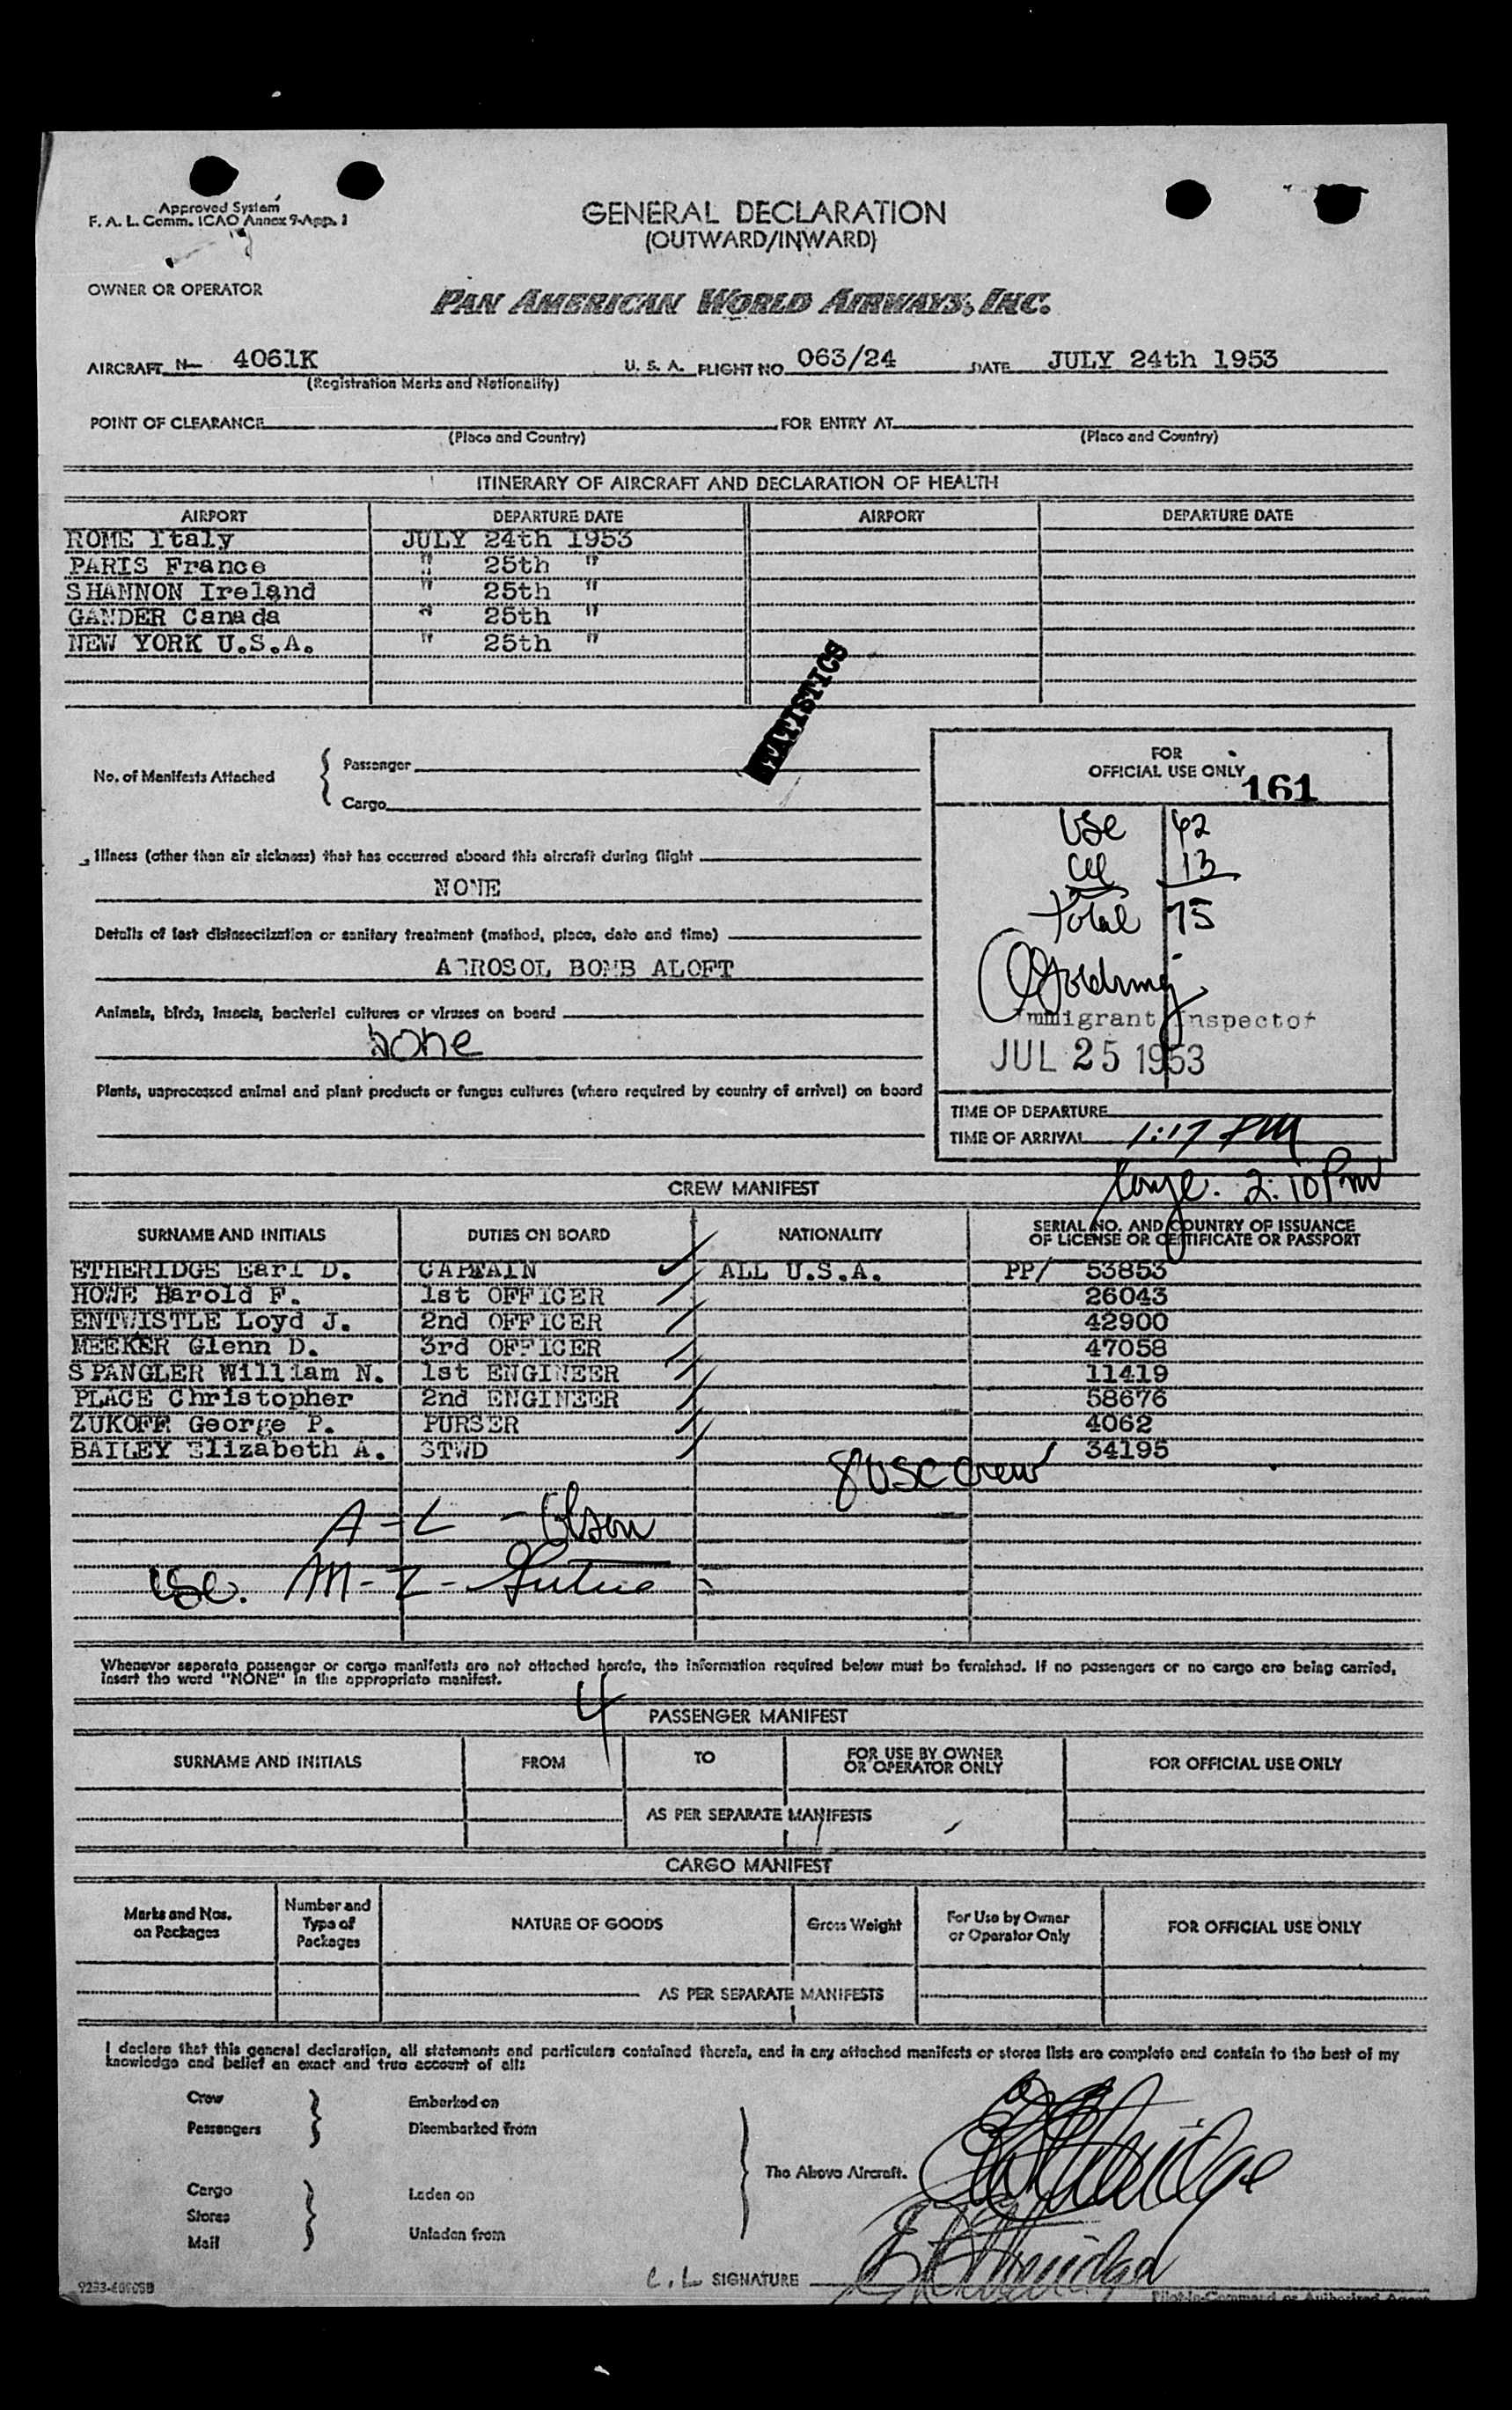 Approved System
F. A. L. Comm. ICAO Annex 9-App. 1
GENERAL DECLARATION
(OUTWARD/INWARD)
OWNER OR OPERATOR
PAN AMERICAN WORLD AIRWAYS, INC.
AIRCRAFT N- 4061K U. S. A. FLIGHT NO 063/24 DATE JULY 24th 1953
(Registration Marks and Nationality)
POINT OF CLEARANCE FOR ENTRY AT
(Place and Country) (Place and Country)
ITINERARY OF AIRCRAFT AND DECLARATION OF HEALTH
AIRPORT DEPARTURE DATE AIRPORT DEPARTURE DATE
ROME Italy JULY 24th 1953
PARIS France " 25th "
SHANNON Ireland " 25th "
GANDER Canada " 25th "
NEW YORK U.S.A. " 25th "
STATISTICS
No. of Manifests Attached { Passenger
Cargo
FOR
OFFICIAL USE ONLY
161
USC 62
13
Total 75
Immigrant Inspector
JUL 25 1953
TIME OF DEPARTURE
TIME OF ARRIVAL 1:17 PM
2:10 PM
Illness (other than air sickness) that has occurred aboard this aircraft during flight
NONE
Details of last disinsectization or sanitary treatment (method, place, date and time)
AEROSOL BOMB ALOFT
Animals, birds, insects, bacterial cultures or viruses on board
none
Plants, unprocessed animal and plant products or fungus cultures (where required by country of arrival) on board
CREW MANIFEST
SURNAME AND INITIALS DUTIES ON BOARD NATIONALITY SERIAL NO. AND COUNTRY OF ISSUANCE
OF LICENSE OR CERTIFICATE OR PASSPORT
ETHERIDGE Earl D. CAPTAIN ALL U.S.A. PP/ 53853
HOWE Harold F. 1st OFFICER 26043
ENTWISTLE Loyd J. 2nd OFFICER 42900
MEEKER Glenn D. 3rd OFFICER 47058
SPANGLER William N. 1st ENGINEER 11419
PLACE Christopher 2nd ENGINEER 58676
ZUKOFF George P. PURSER 4062
BAILEY Elizabeth A. STWD 34195
8 USC Crew
A - L - Olson
USC. M - Z -
Whenever separate passenger or cargo manifests are not attached hereto, the information required below must be furnished. If no passengers or no cargo are being carried,
insert the word "NONE" in the appropriate manifest.
4
PASSENGER MANIFEST
SURNAME AND INITIALS FROM TO FOR USE BY OWNER
OR OPERATOR ONLY FOR OFFICIAL USE ONLY
AS PER SEPARATE MANIFESTS
CARGO MANIFEST
Marks and Nos.
on Packages
Number and
Type of
Packages
NATURE OF GOODS Gross Weight For Use by Owner
or Operator Only FOR OFFICIAL USE ONLY
AS PER SEPARATE MANIFESTS
I declare that this general declaration, all statements and particulars contained therein, and in any attached manifests or stores lists are complete and contain to the best of my
knowledge and belief an exact and true account of all:
Crew Embarked on
Passengers Disembarked from
The Above Aircraft.
Cargo Laden on
Stores
Mail Unladen from
C. L SIGNATURE
Pilot-in-Command or Authorized Agent